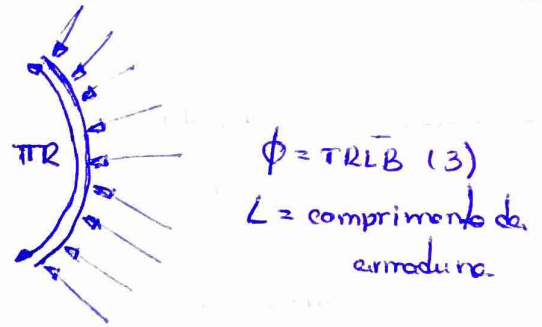 πR
ϕ = πRLB̄ (3)
L = comprimento da
armadura.